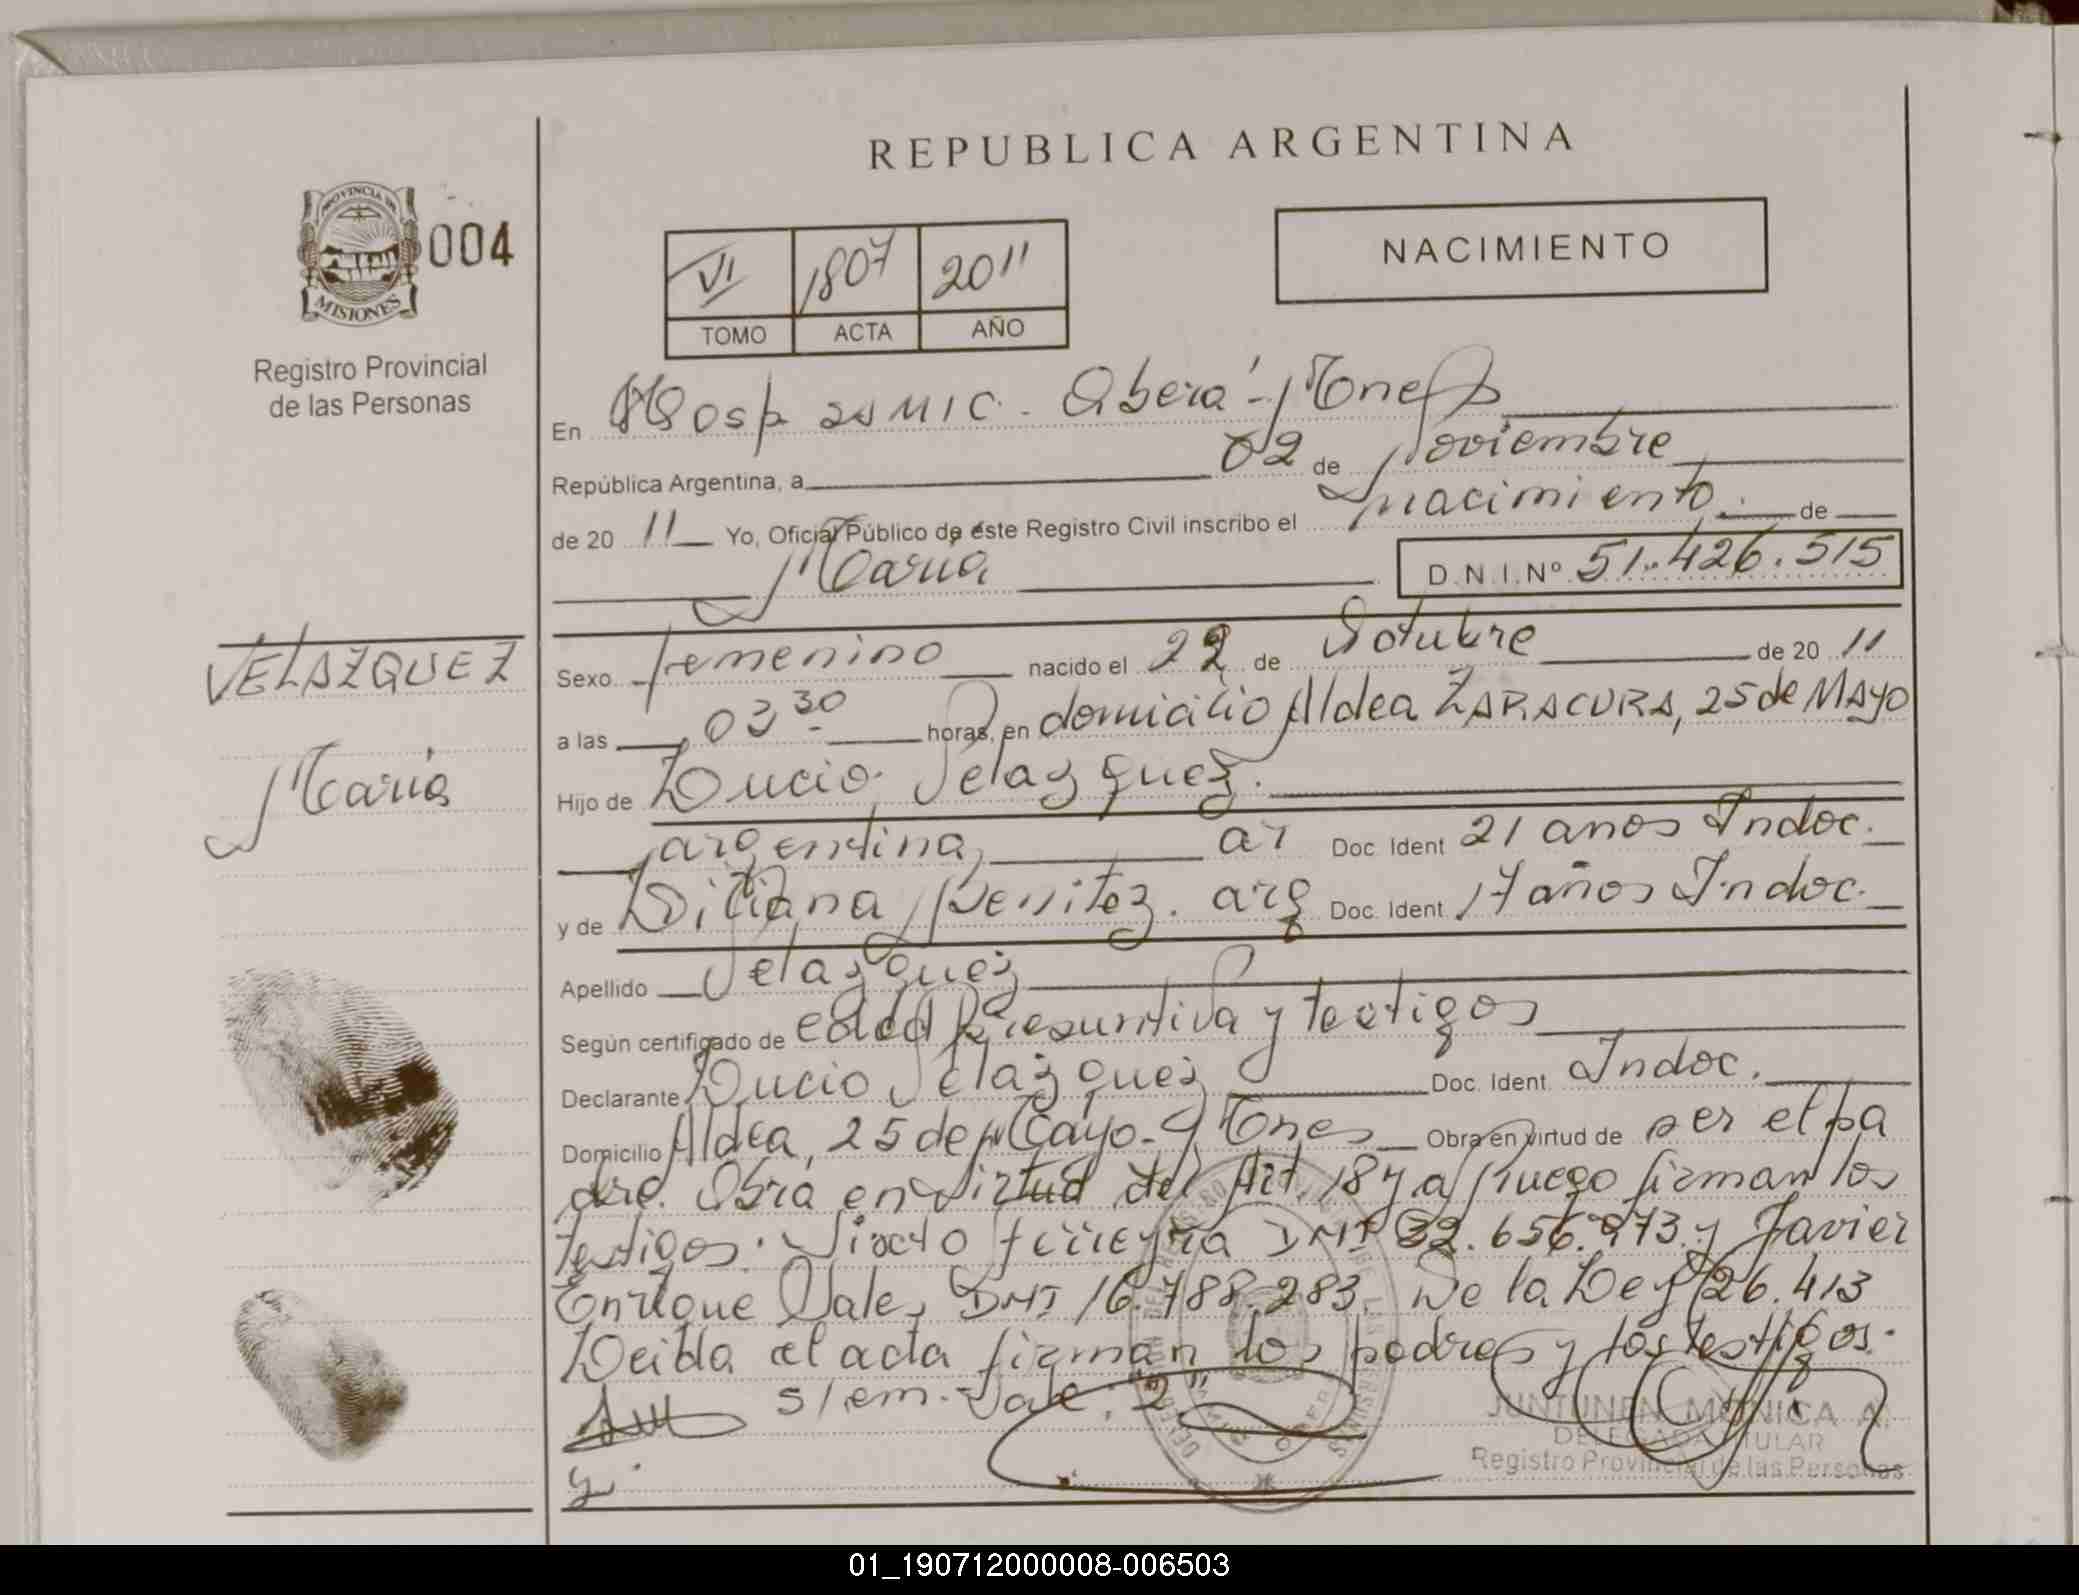 REPUBLICA ARGENTINA
PROVINCIA DE
MISIONES
004
Registro Provincial
de las Personas
VI 1807 2011
TOMO ACTA AÑO
NACIMIENTO
En Hosp SAMIC. Oberá - Mnes
República Argentina, a 02 de Noviembre
de 20 11 Yo, Oficial Público de este Registro Civil inscribo el nacimiento de
María D.N.I.Nº 51.426.515
VELAZQUEZ
María
Sexo femenino nacido el 22 de Octubre de 20 11
a las 03 30 horas, en domicilio Aldea ZARACURA, 25 de MAYO
Hijo de Lucio Velazquez.
argentina, ar Doc. Ident 21 anos Indoc.
y de Liliana Benitez. arg Doc. Ident 17 años Indoc.
Apellido Velazquez
Según certificado de edad Presuntiva y testigos
Declarante Lucio Velazquez Doc. Ident. Indoc.
Domicilio Aldea, 25 de Mayo - Mnes Obra en virtud de ser el pa
dre. Obra en Virtud del Art. 18 y a Ruego firman los
testigos. Sixto Ferreyra DNI 32.656.973 y Javier
Enrique Vale, DNI 16.788.283. De la Ley 26.413
Leida el acta firman los padres y los testigos.
s/em. Vale: "2"
JUNTUNEN MONICA A.
DELEGADA TITULAR
Registro Provincial de las Personas
01_190712000008-006503